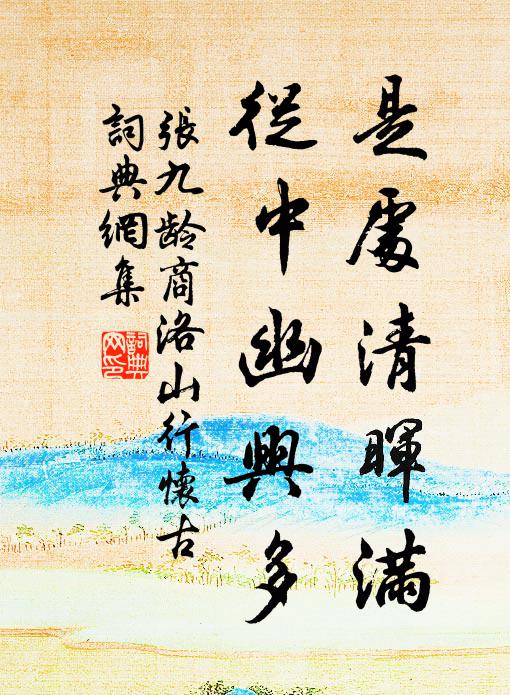 是處清暉滿
從中幽興多
張九齡商洛山行懷古
詞典網集
詞典
网印